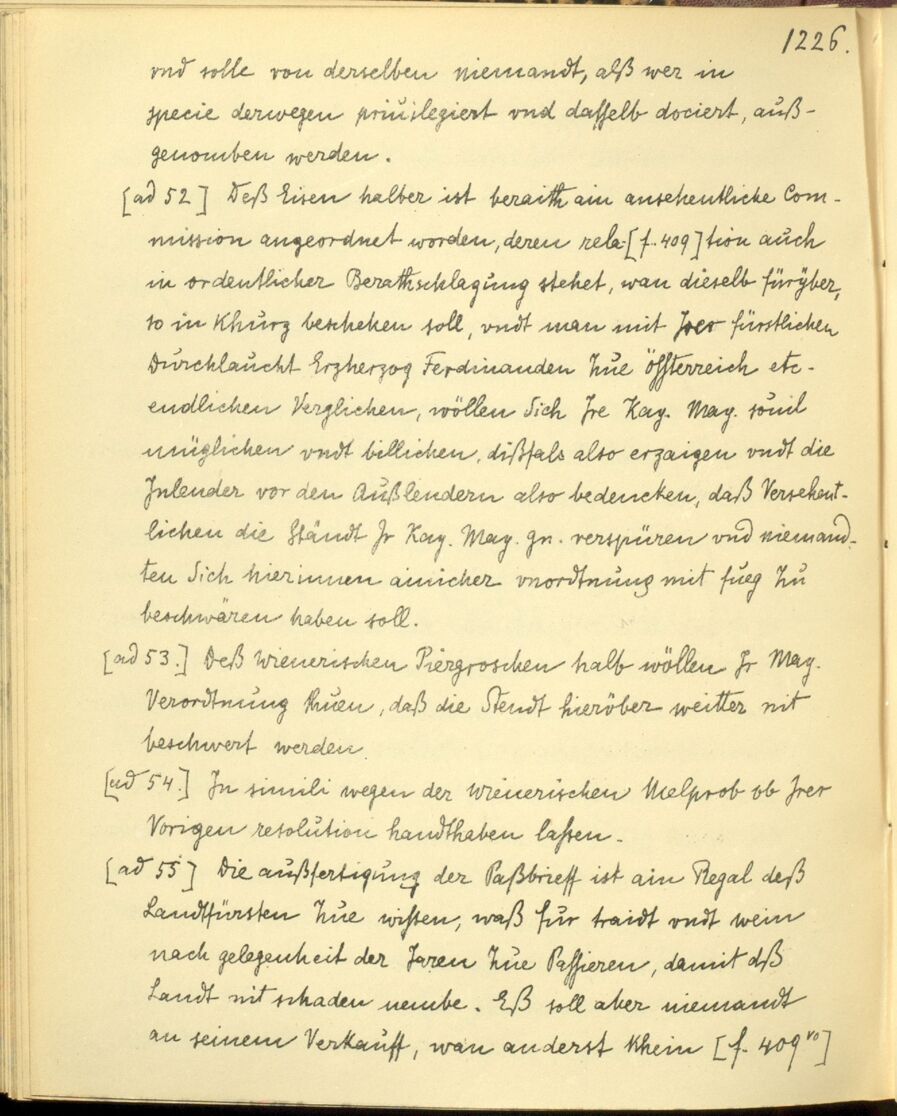 1226.
vnd solle von derselben niemandt, alß wer in
specie derwegen priuilegiert vnd dasselb dociert, auß-
genomben werden.
[ad 52] Deß Eisen halber ist beraith ain ansehentliche Com-
mission angeordnet worden, deren rela-[f. 409]tion auch
in ordentlicher Berathschlagung stehet, wan dieselb fürÿber,
so in Khurz beschehen soll, vndt man mit Jrer fürstlichen
Durchlaucht Erzherzog Ferdinanden Zue Össterreich etc.
endlichen Verglichen, wöllen Sich Jre Kay. May. souil
müglichen vndt billichen, dißfals also erzaigen vndt die
Jnlender vor den Außlendern also bedencken, daß Versehent-
lichen die Ständt Jr Kay. May. gn. verspüren vnd niemand-
ten Sich hierinnen ainicher vnordtnung mit fueg Zu
beschwären haben soll.
[ad 53.] Deß wienerischen Piergroschen halb wöllen Jr May.
Verordtnung thuen, daß die Stendt hierüber weitter nit
beschwert werden.
[ad 54.] Jn simili wegen der wienerischen Melprob ob Jrer
Vorigen resolution handthaben lassen.
[ad 55] Die außfertigung der Paßbrieff ist ain Regal deß
Landtfürsten Zue wissen, waß fur traidt vndt wein
nach gelegenheit der Jaren Zue Passieren, damit dß
Landt nit schaden nembe. Eß soll aber niemandt
an seinem Verkauff, wan anderst Khein [f. 409vo]